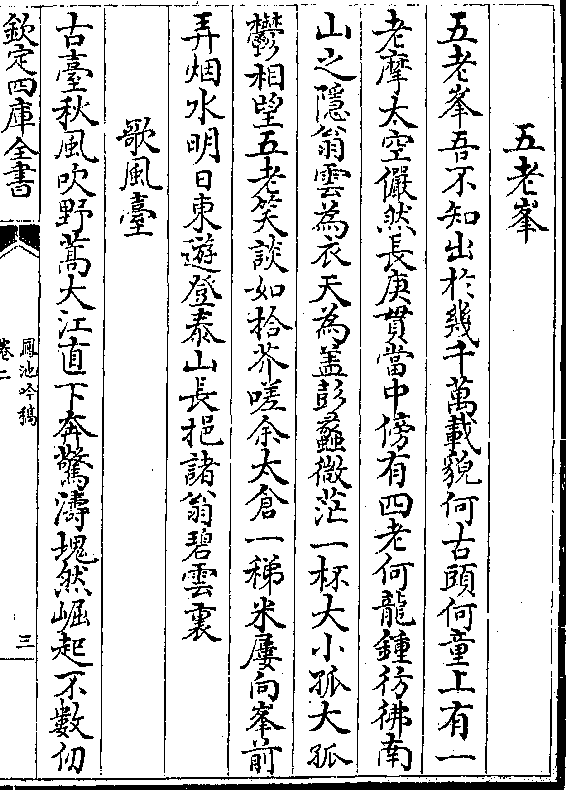 五老峯
五老峯吾不知出於幾千萬載貌何古頭何童上有一
老摩太空儼然長庚貫當中傍有四老何龍鍾彷彿南
山之隱翁雲為衣天為盖彭蠡微茫一杯大小孤大孤
鬱相望五老笑談如拾芥嗟余太倉一稊米屢向峯前
弄烟水明日東遊登泰山長挹諸翁碧雲裏
歌風臺
古臺秋風吹野蒿大江直下奔驚濤塊然崛起不數仞
欽定四庫全書
鳳池吟稿
卷二
三